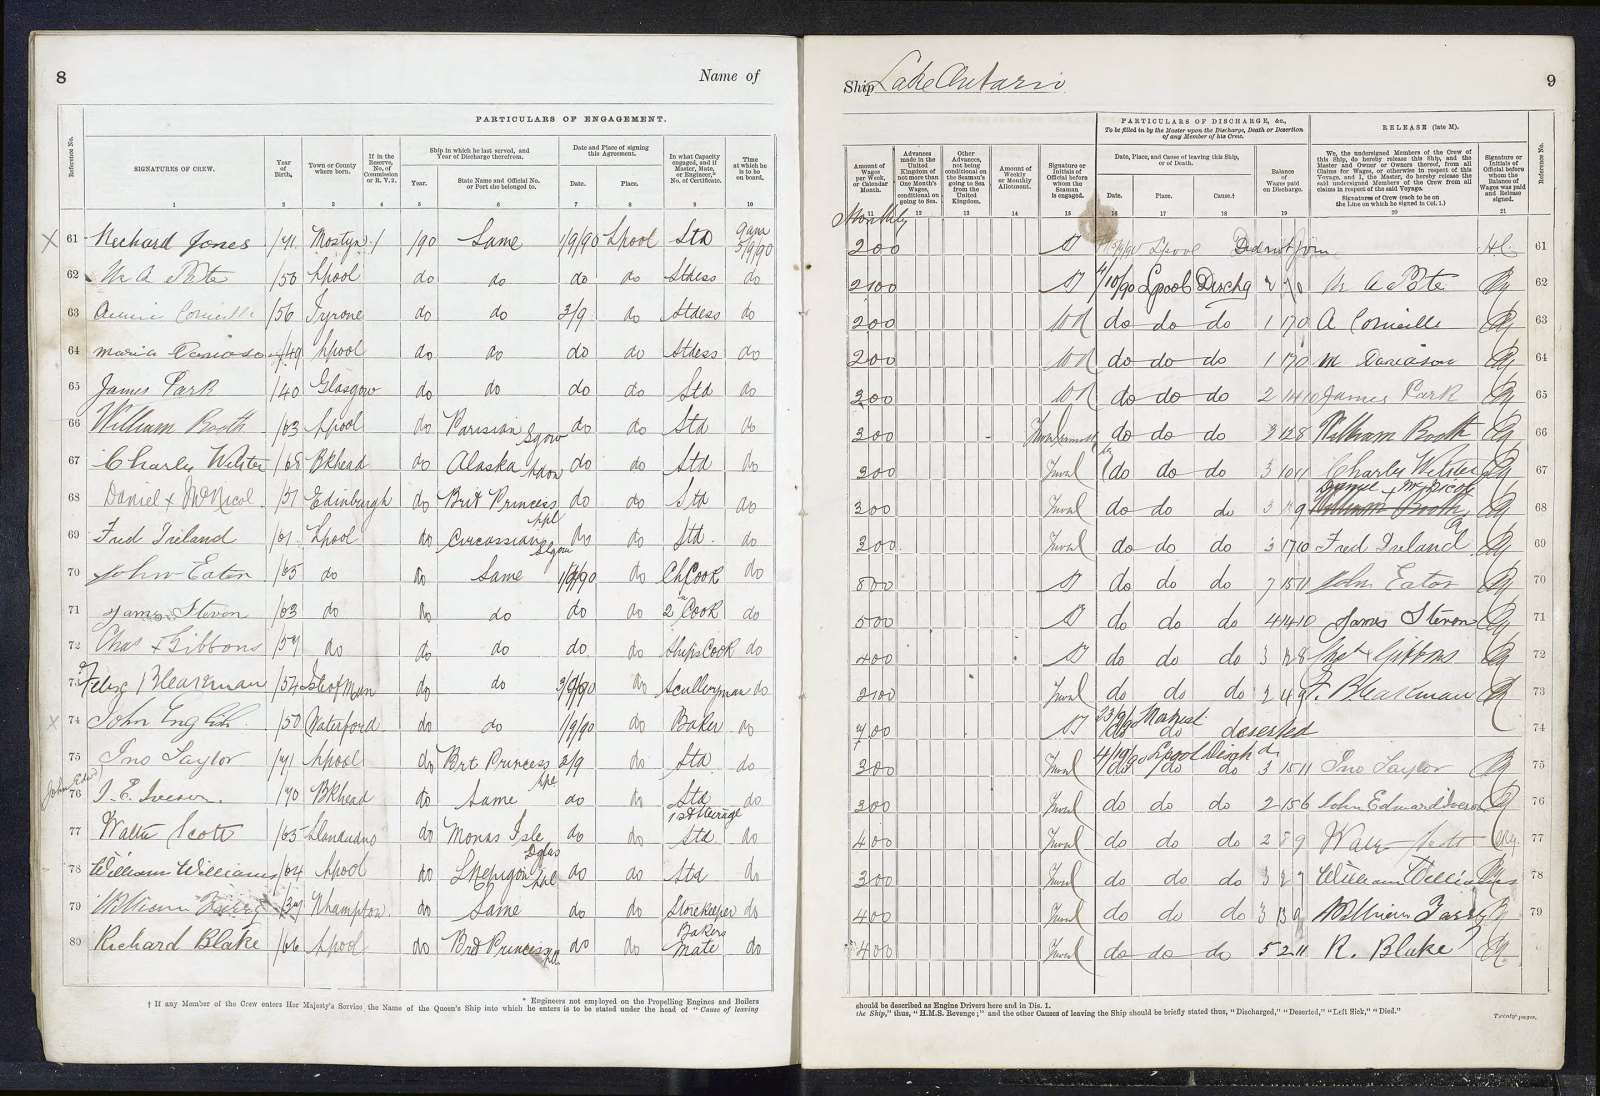 8
Name of
PARTICULARS OF ENGAGEMENT.
Reference No.
SIGNATURES OF CREW.
Year of Birth,
Town or County where born.
If in the Reserve, No. of Commission or R. V. 2.
Ship in which he last served, and Year of Discharge therefrom.
Year.
State Name and Official No. or Port she belonged to.
Date and Place of signing this Agreement.
Date.
Place.
In what Capacity engaged, and if Master, Mate, or Engineer,* No. of Certificate.
Time at which he is to be on board.
1 2 3 4 5 6 7 8 9 10
61 Richard Jones /71 Mostyn /90 Same 1/9/90 Lpool Std 9am 5/9/90
62 M A Pote /50 Lpool do do do do Stdess do
63 Annie Corneille /56 Tyrone do do 3/9 do Stdess do
64 Maria Davidson /49 Lpool do do do do Stdess do
65 James Park /40 Glasgow do do do do Std do
66 William Booth /63 Lpool do Parisian Sgow do do Std do
67 Charley Webster /68 Bkhead do Alaska do do Std do
68 Daniel x McNicol /51 Edinburgh do Brit Princess Lpl do do Std do
69 Fred Ireland /61 Lpool do Circassian Glgow do do Std do
70 John Eaton /63 do do Same do Ch Cook do
71 James Steven /63 do do do do do 2nd Cook do
72 Chas x Gibbons /57 do do do do do Ships Cook do
73 Felix Bleakman /54 Isle of Man do do do Scullery man do
74 John English /50 Waterford do do 1/9/90 do Baker do
75 Jno Taylor /71 Lpool do Brt Princess Lpl 2/9 do Std do
John Edwd
76 J. E. Iveson. /70 Bkhead do Same do do Std do
77 Walter Scott /65 Llandudno do Monas Isle Dglas do do 1st Steerage Std do
78 William Williams /64 Lpool do L Nepigon Lpl do do Std do
79 William Farry Nhampton do Same do do Storekeeper do
80 Richard Blake /66 Lpool do Brit Princess Lpl do do Bakers Mate do
* Engineers not employed on the Propelling Engines and Boilers
† If any Member of the Crew enters Her Majesty's Service the Name of the Queen's Ship into which he enters is to be stated under the head of "Cause of leaving
Ship Lake Ontario
9
PARTICULARS OF DISCHARGE, &c.,
To be filled in by the Master upon the Discharge, Death or Desertion of any Member of his Crew.
RELEASE (late M).
Amount of Wages per Week, or Calendar Month.
Advances made in the United Kingdom of not more than One Month's Wages, conditional on going to Sea.
Other Advances, not being conditional on the Seaman's going to Sea from the United Kingdom.
Amount of Weekly or Monthly Allotment.
Signature or Initials of Official before whom the Seaman is engaged.
Date, Place, and Cause of leaving this Ship, or of Death.
Date.
Place.
Cause.†
Balance of Wages paid on Discharge.
We, the undersigned Members of the Crew of this Ship, do hereby release this Ship, and the Master and Owner or Owners thereof, from all Claims for Wages, or otherwise in respect of this Voyage, and I, the Master, do hereby release the said undersigned Members of the Crew from all claims in respect of the said Voyage.
Signatures of Crew (each to be on the Line on which he signed in Col. 1.)
Signature or Initials of Official before whom the Balance of Wages was paid and Release signed.
Reference No.
11 12 13 14 15 16 17 18 19 20 21
Monthly
2 0 0 Lpool Did not join 61
2 10 0 4/10/90 Lpool Dischg 2 7 0 M A Pote 62
2 0 0 do do do 1 17 0 A Corneille 63
2 0 0 do do do 1 17 0 M Davidson 64
3 0 0 do do do 2 14 10 James Park 65
3 0 0 do do do 3 12 8 William Booth 66
3 0 0 do do do 3 10 11 Charley Webster 67
3 0 0 do do do Daniel x McNicol 68
3 0 0 do do do 3 17 0 Fred Ireland 69
8 0 0 do do do 7 15 11 John Eaton 70
5 0 0 do do do 4 14 10 James Steven 71
4 0 0 do do do Chas x Gibbons 72
2 10 0 do do do 2 4 9 F. Bleakman 73
7 0 0 23/9/90 Montreal deserted 74
3 0 0 4/10/90 Lpool Dischd 3 15 11 Jno Taylor 75
3 0 0 do do do 2 15 6 John Edward Iveson 76
4 0 0 do do do Walter Scott 77
3 0 0 do do do 3 2 7 William Williams 78
4 0 0 do do do 3 13 9 William Farry 79
4 0 0 do do do 5 2 11 R. Blake
should be described as Engine Drivers here and in Dis. 1.
the Ship," thus, "H.M.S. Revenge;" and the other Causes of leaving the Ship should be briefly stated thus, "Discharged," "Deserted," "Left Sick," "Died."
Twenty pages.